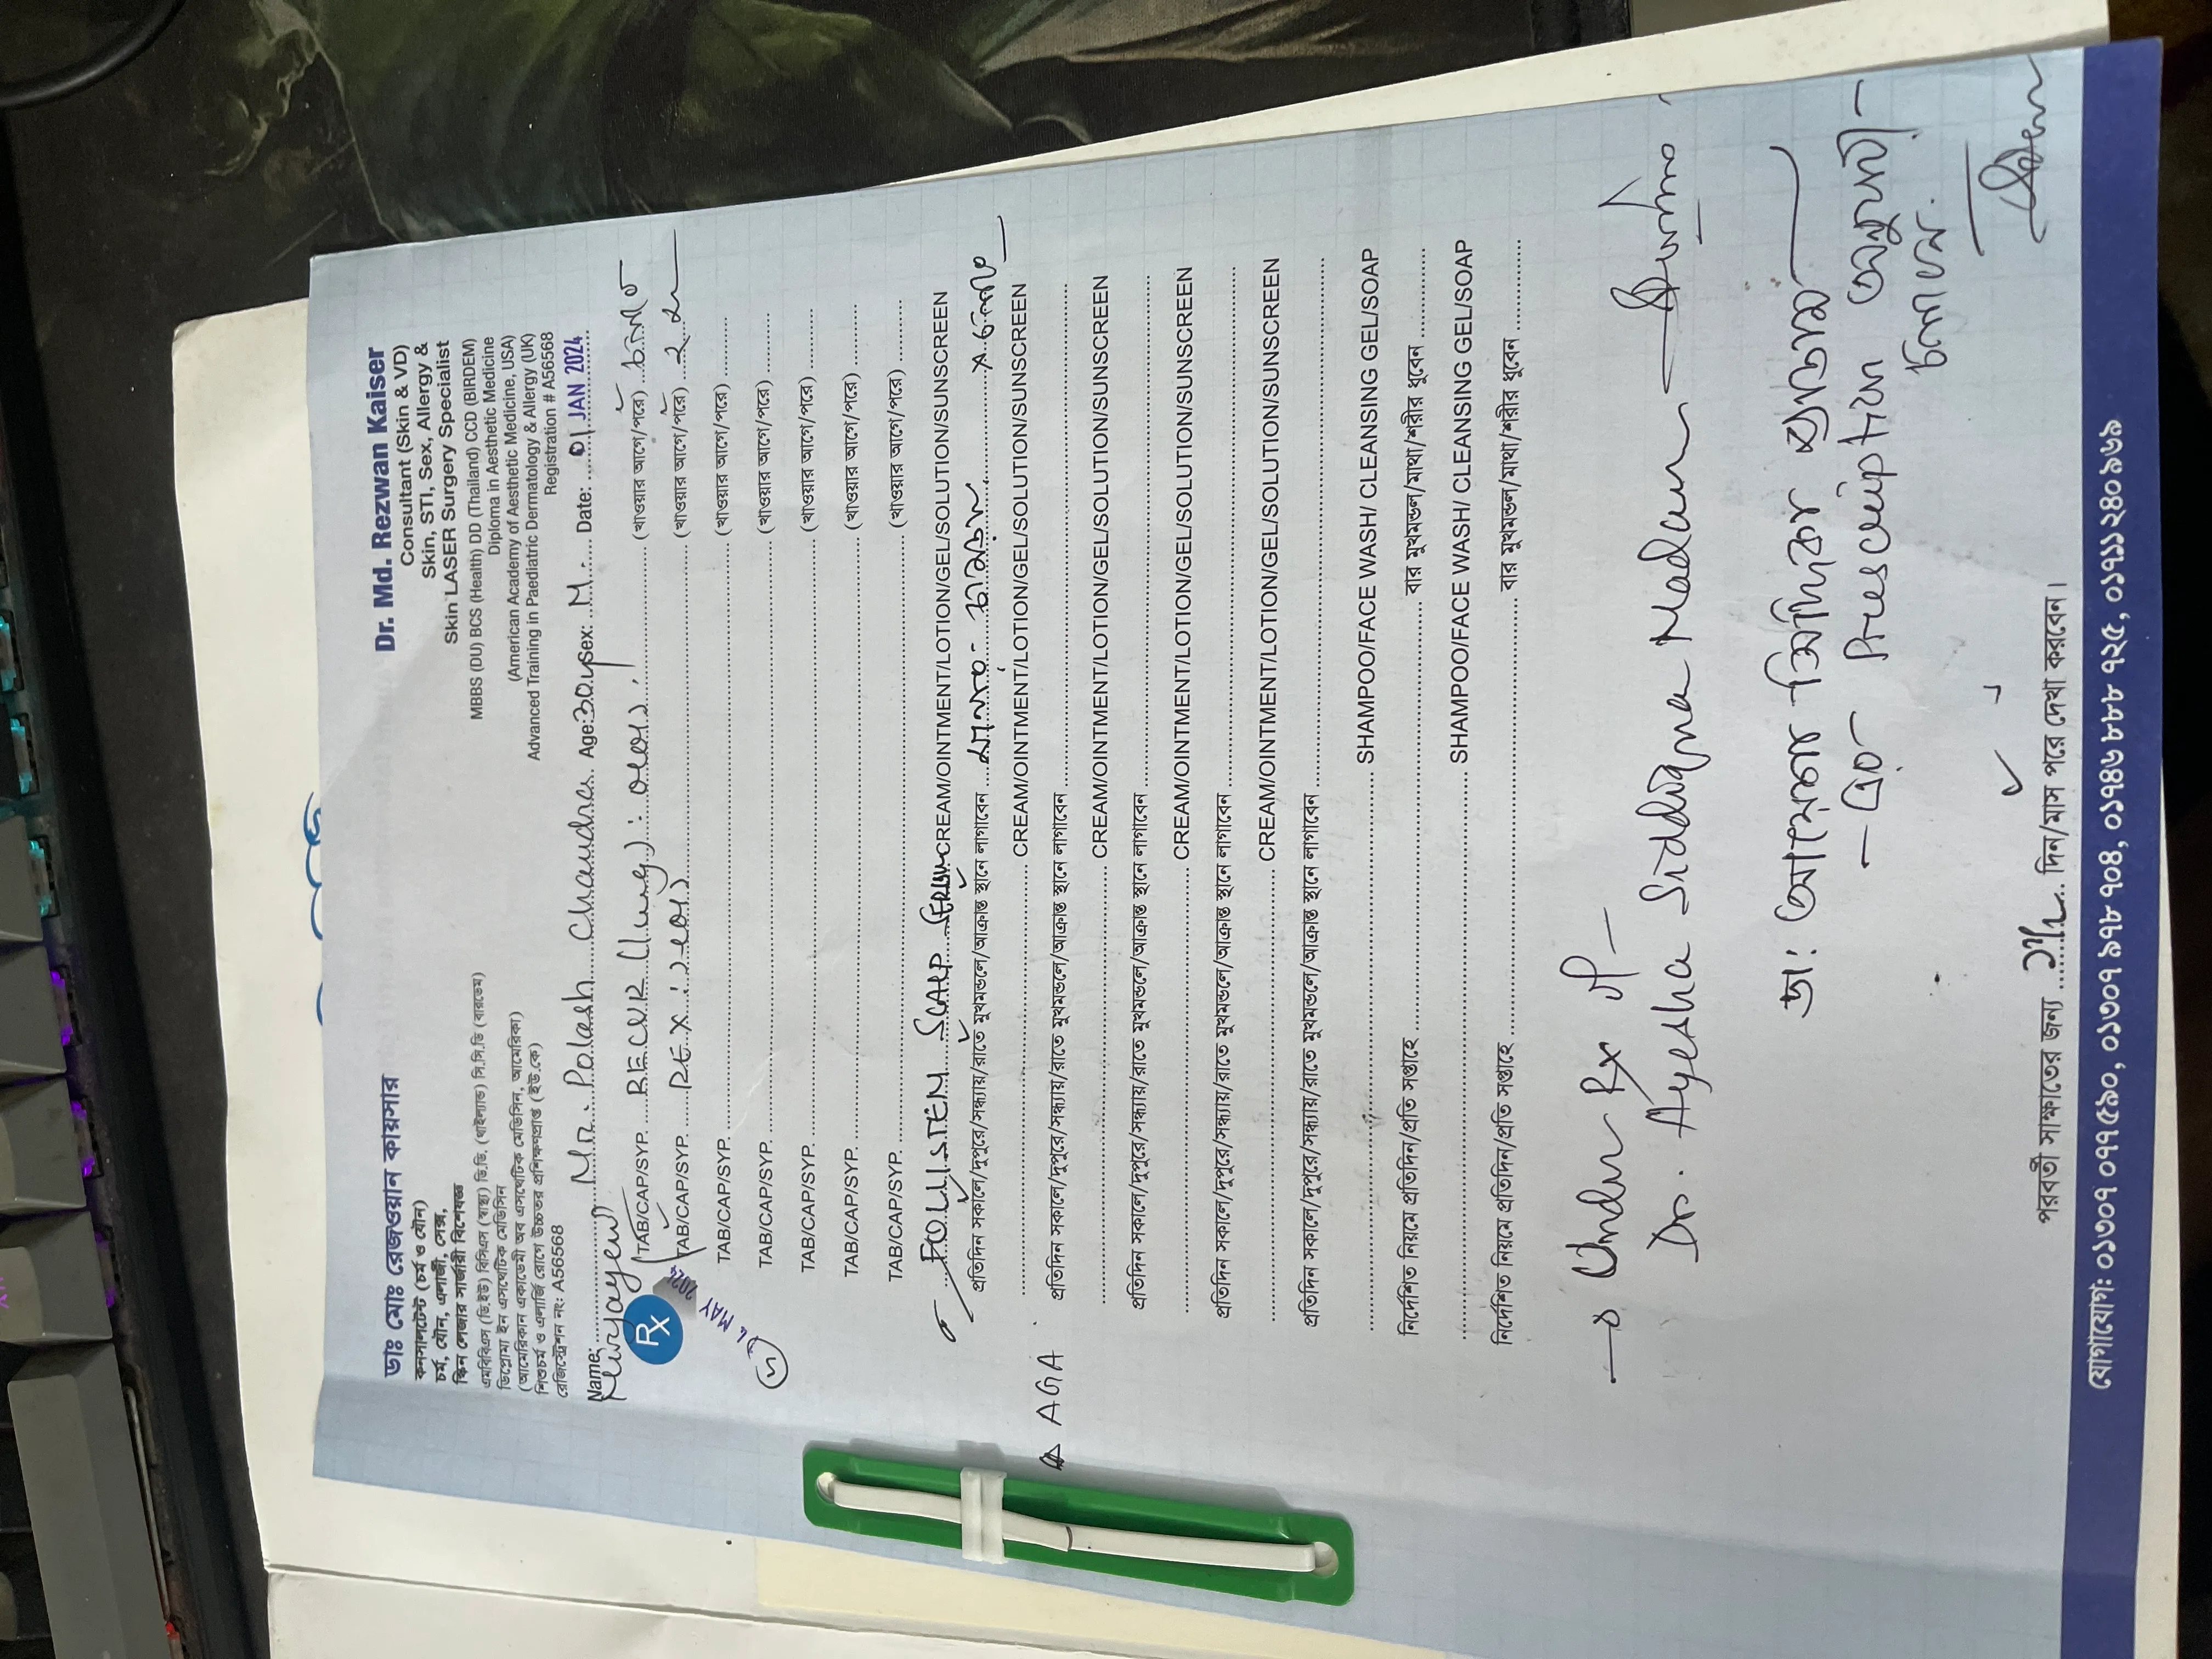 ডাঃ মোঃ রেজওয়ান কায়সার
কনসালটেন্ট (চর্ম ও যৌন)
চর্ম, যৌন, এলার্জী, সেক্স,
স্কিন লেজার সার্জারী বিশেষজ্ঞ
এমবিবিএস (ডি.ইউ) বিসিএস (স্বাস্থ্য) ডি.ডি. (থাইল্যান্ড) সি.সি.ডি (বারডেম)
ডিপ্লোমা ইন এসথেটিক মেডিসিন
(আমেরিকান একাডেমী অব এসথেটিক মেডিসিন, আমেরিকা)
শিশুচর্ম ও এলার্জি রোগে উচ্চতর প্রশিক্ষণপ্রাপ্ত (ইউ.কে)
রেজিস্ট্রেশন নং: A56568
Dr. Md. Rezwan Kaiser
Consultant (Skin & VD)
Skin, STI, Sex, Allergy &
Skin LASER Surgery Specialist
MBBS (DU) BCS (Health) DD (Thailand) CCD (BIRDEM)
Diploma in Aesthetic Medicine
(American Academy of Aesthetic Medicine, USA)
Advanced Training in Paediatric Dermatology & Allergy (UK)
Registration # A56568
Name: Mr. Polash Chandra Age: 30 yr Sex: M Date: 01 JAN 2024
Rx
TAB/CAP/SYP. RECUR (1mg) : ০+০+১ (খাওয়ার আগে/পরে) চলবে
TAB/CAP/SYP. REX : ১+০+১ (খাওয়ার আগে/পরে)
MAY 2024
TAB/CAP/SYP. (খাওয়ার আগে/পরে)
TAB/CAP/SYP. (খাওয়ার আগে/পরে)
TAB/CAP/SYP. (খাওয়ার আগে/পরে)
TAB/CAP/SYP. (খাওয়ার আগে/পরে)
TAB/CAP/SYP. (খাওয়ার আগে/পরে)
FOLLISTEM SCALP SERUM CREAM/OINTMENT/LOTION/GEL/SOLUTION/SUNSCREEN
প্রতিদিন সকালে/দুপুরে/সন্ধ্যায়/রাতে মুখমন্ডলে/আক্রান্ত স্থানে লাগাবেন
CREAM/OINTMENT/LOTION/GEL/SOLUTION/SUNSCREEN
AGA
প্রতিদিন সকালে/দুপুরে/সন্ধ্যায়/রাতে মুখমন্ডলে/আক্রান্ত স্থানে লাগাবেন
CREAM/OINTMENT/LOTION/GEL/SOLUTION/SUNSCREEN
প্রতিদিন সকালে/দুপুরে/সন্ধ্যায়/রাতে মুখমন্ডলে/আক্রান্ত স্থানে লাগাবেন
CREAM/OINTMENT/LOTION/GEL/SOLUTION/SUNSCREEN
প্রতিদিন সকালে/দুপুরে/সন্ধ্যায়/রাতে মুখমন্ডলে/আক্রান্ত স্থানে লাগাবেন
CREAM/OINTMENT/LOTION/GEL/SOLUTION/SUNSCREEN
প্রতিদিন সকালে/দুপুরে/সন্ধ্যায়/রাতে মুখমন্ডলে/আক্রান্ত স্থানে লাগাবেন
SHAMPOO/FACE WASH/ CLEANSING GEL/SOAP
নির্দেশিত নিয়মে প্রতিদিন/প্রতি সপ্তাহে বার মুখমন্ডল/মাথা/শরীর ধুবেন
SHAMPOO/FACE WASH/ CLEANSING GEL/SOAP
নির্দেশিত নিয়মে প্রতিদিন/প্রতি সপ্তাহে বার মুখমন্ডল/মাথা/শরীর ধুবেন
Under Rx of
Dr. Ayesha Siddiqua Madam
ডা: আয়েশা সিদ্দিকা ম্যাডাম
এর Prescription অনুযায়ী
চলবে.
পরবর্তী সাক্ষাতের জন্য দিন/মাস পরে দেখা করবেন।
যোগাযোগ: ০১৭০৭ ০৭৭৫৯০, ০১৭০৭ ৯৭৮ ৭০৪, ০১৭৪৬ ৮৮৮ ৭২৫, ০১৭১১ ২৪০ ৯৬৯